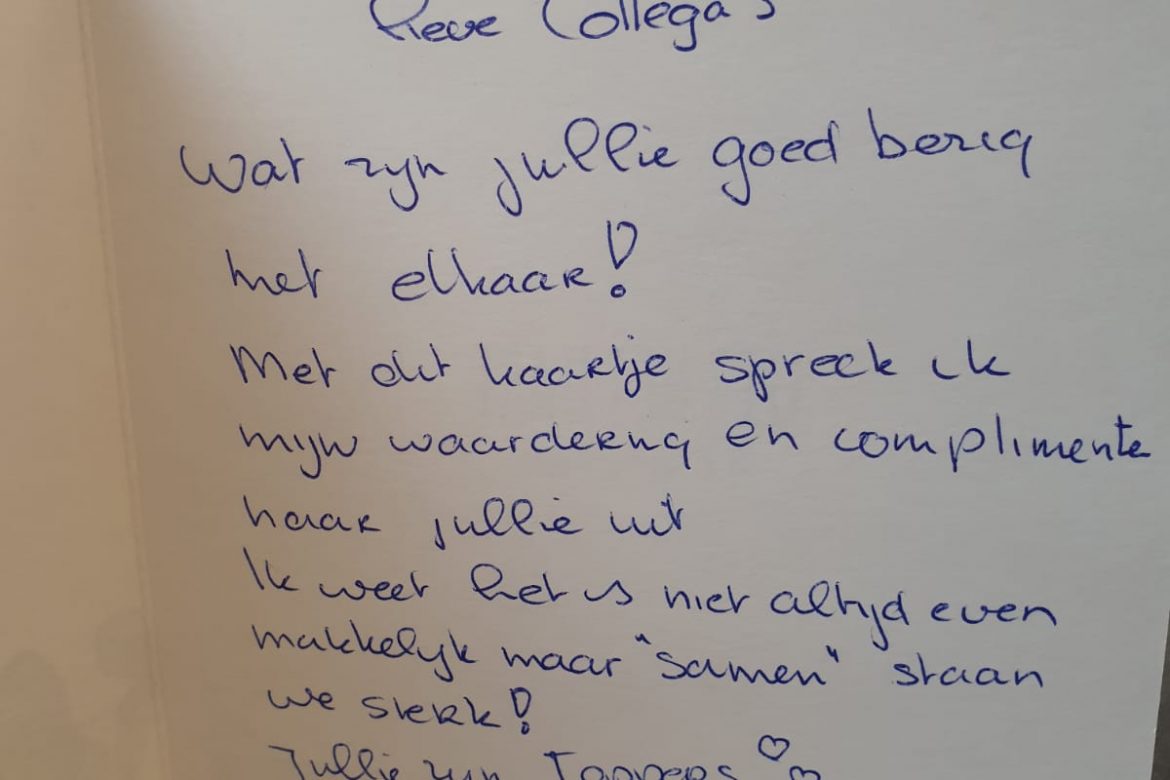 Lieve Collega's
Wat zijn jullie goed bezig
met elkaar!
Met dit kaartje spreek ik
mijn waardering en complimente
naar jullie uit
Ik weet het is niet altijd even
makkelijk maar "samen" staan
we sterk!
Jullie zijn Toppers ♡♡